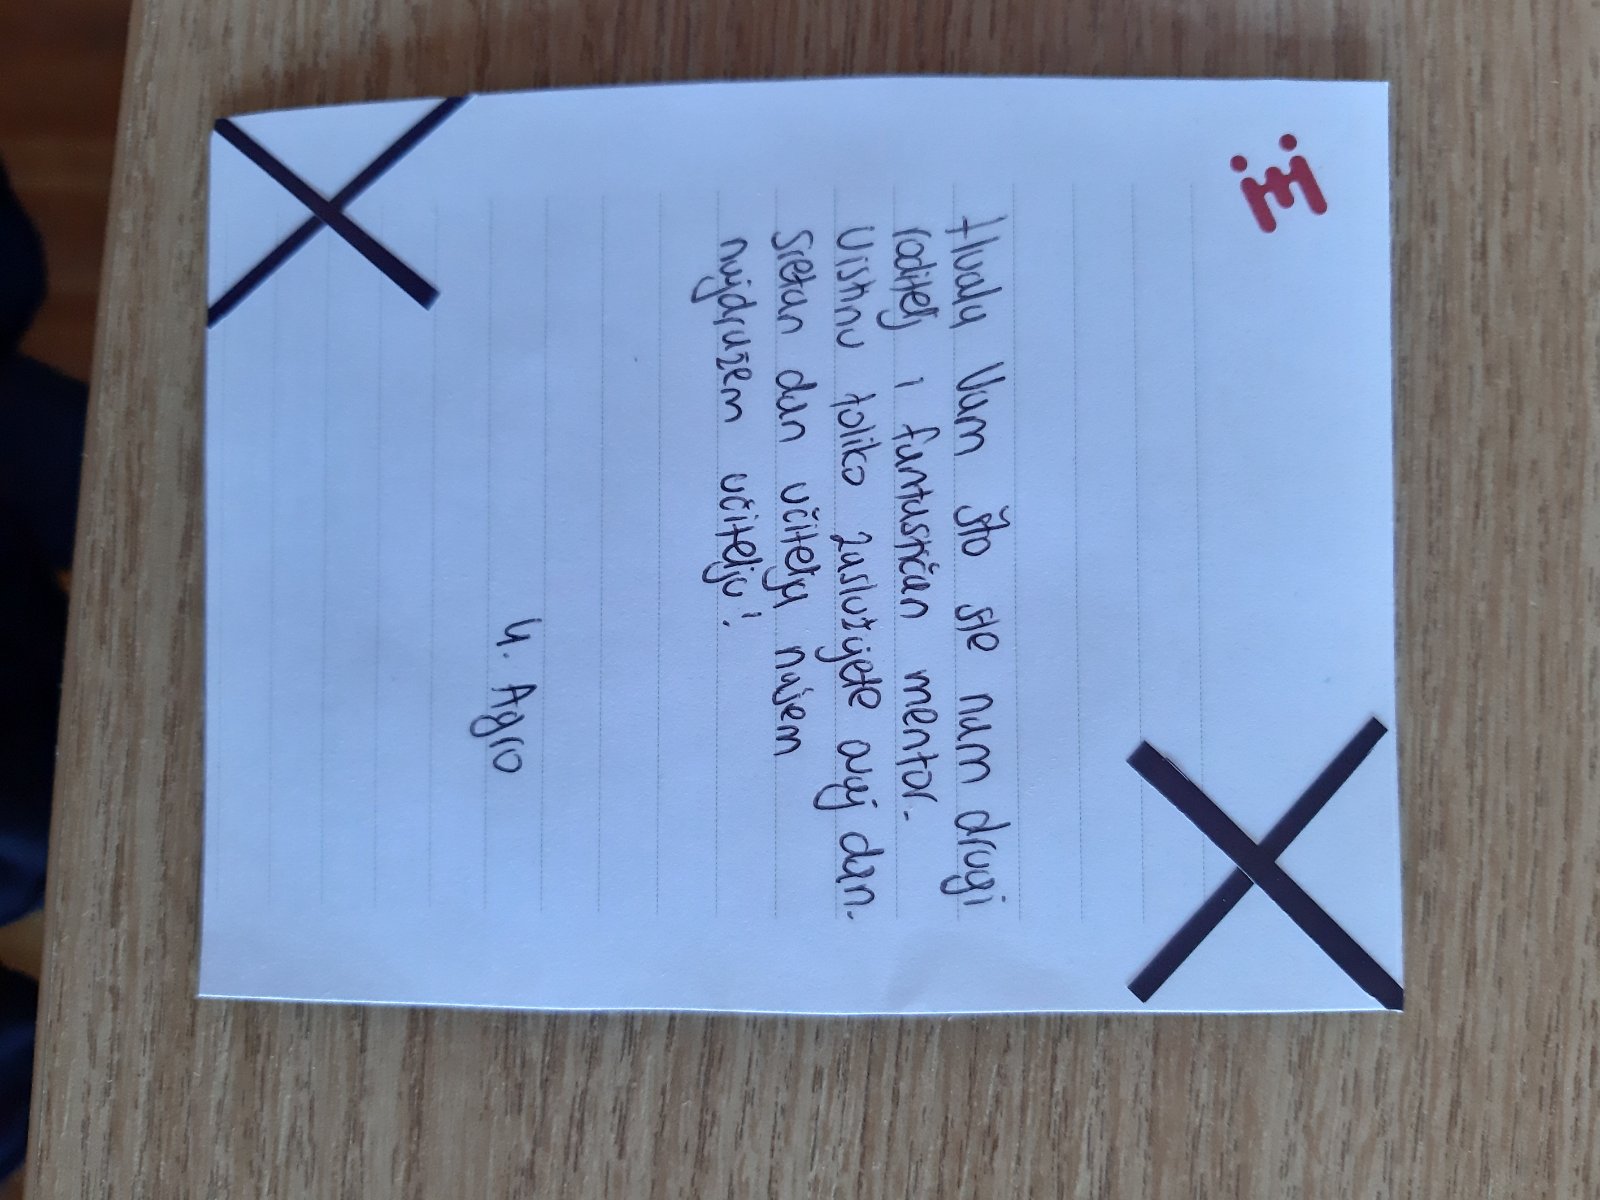 Hvala Vam što ste nam drugi
roditelj i fantastičan mentor.
Uistinu toliko zaslužujete ovaj dan.
Sretan dan učitelja našem
najdražem učitelju!
4. Agro